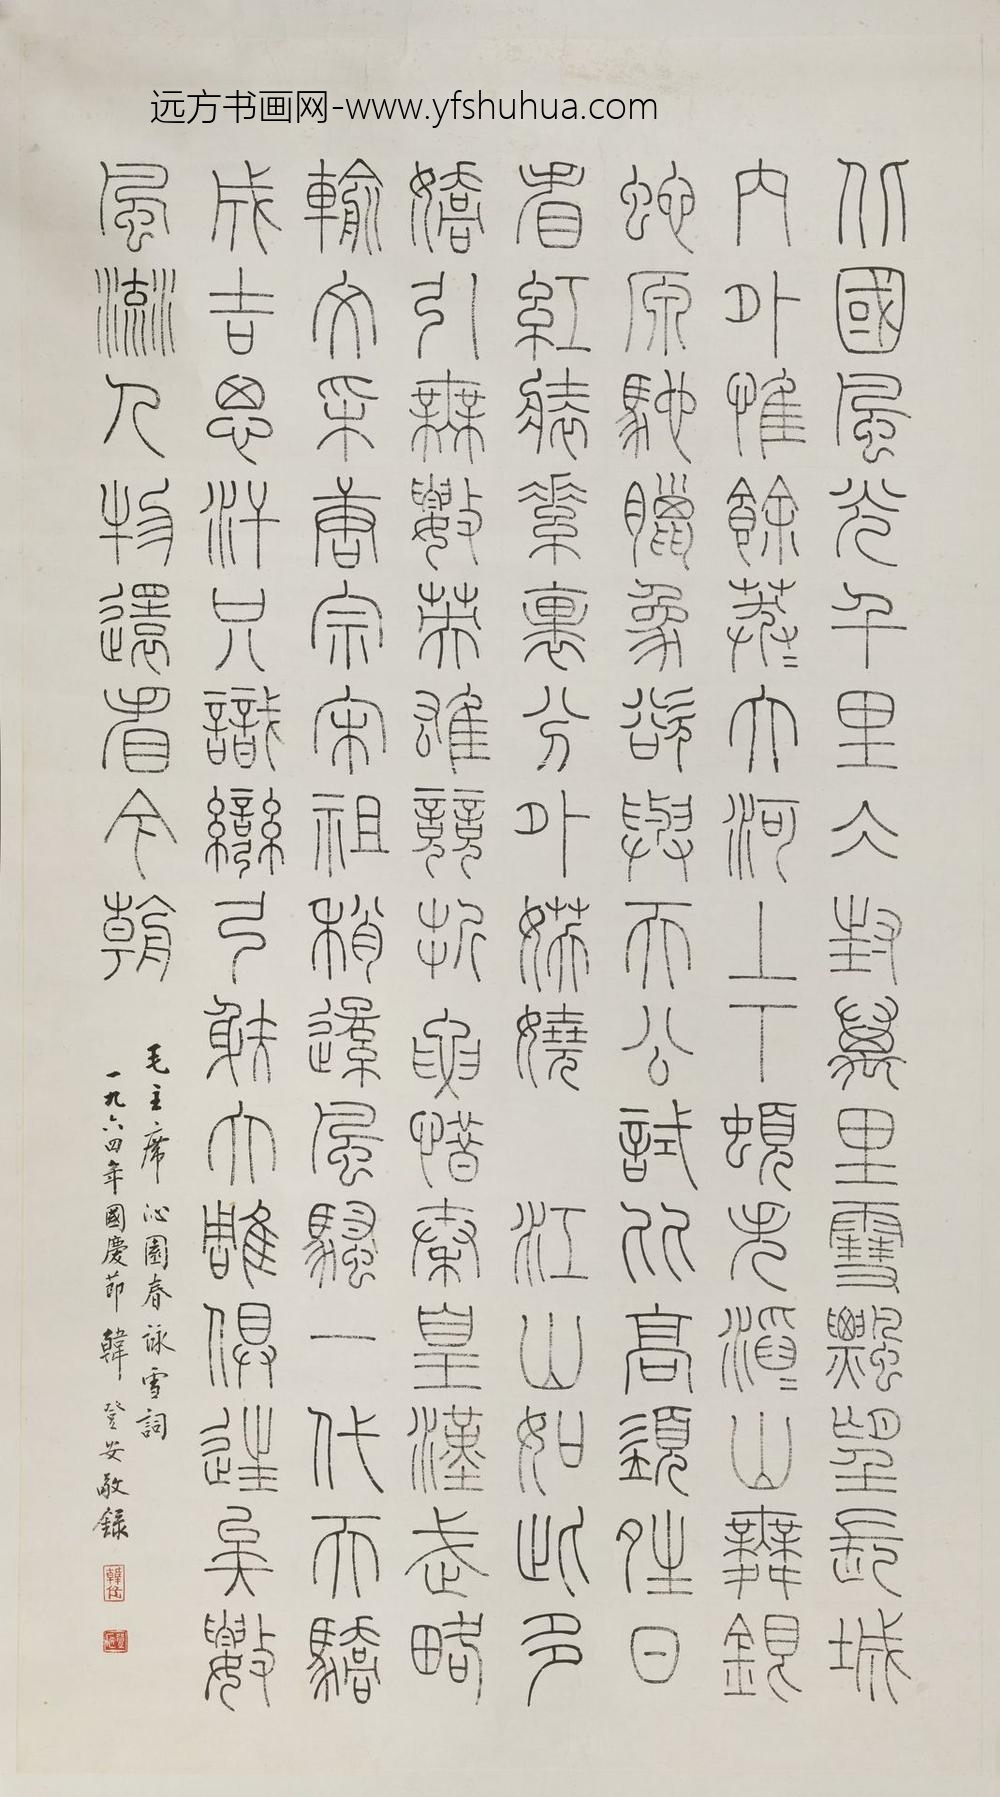 远方书画网-www.yfshuhua.com
北國風光千里冰封萬里雪飄望長城
內外惟餘莽〻大河上下頓失滔〻山舞銀
蛇原馳臘象欲與天公試比高須晴日
看紅裝素裹分外妖嬈 江山如此多
嬌引無數英雄競折腰惜秦皇漢武略
輸文采唐宗宋祖稍遜風騷一代天驕
成吉思汗只識彎弓射大雕俱往矣數
風流人物還看今朝
毛主席沁園春詠雪詞
一九六四年國慶節 韓登安敬錄